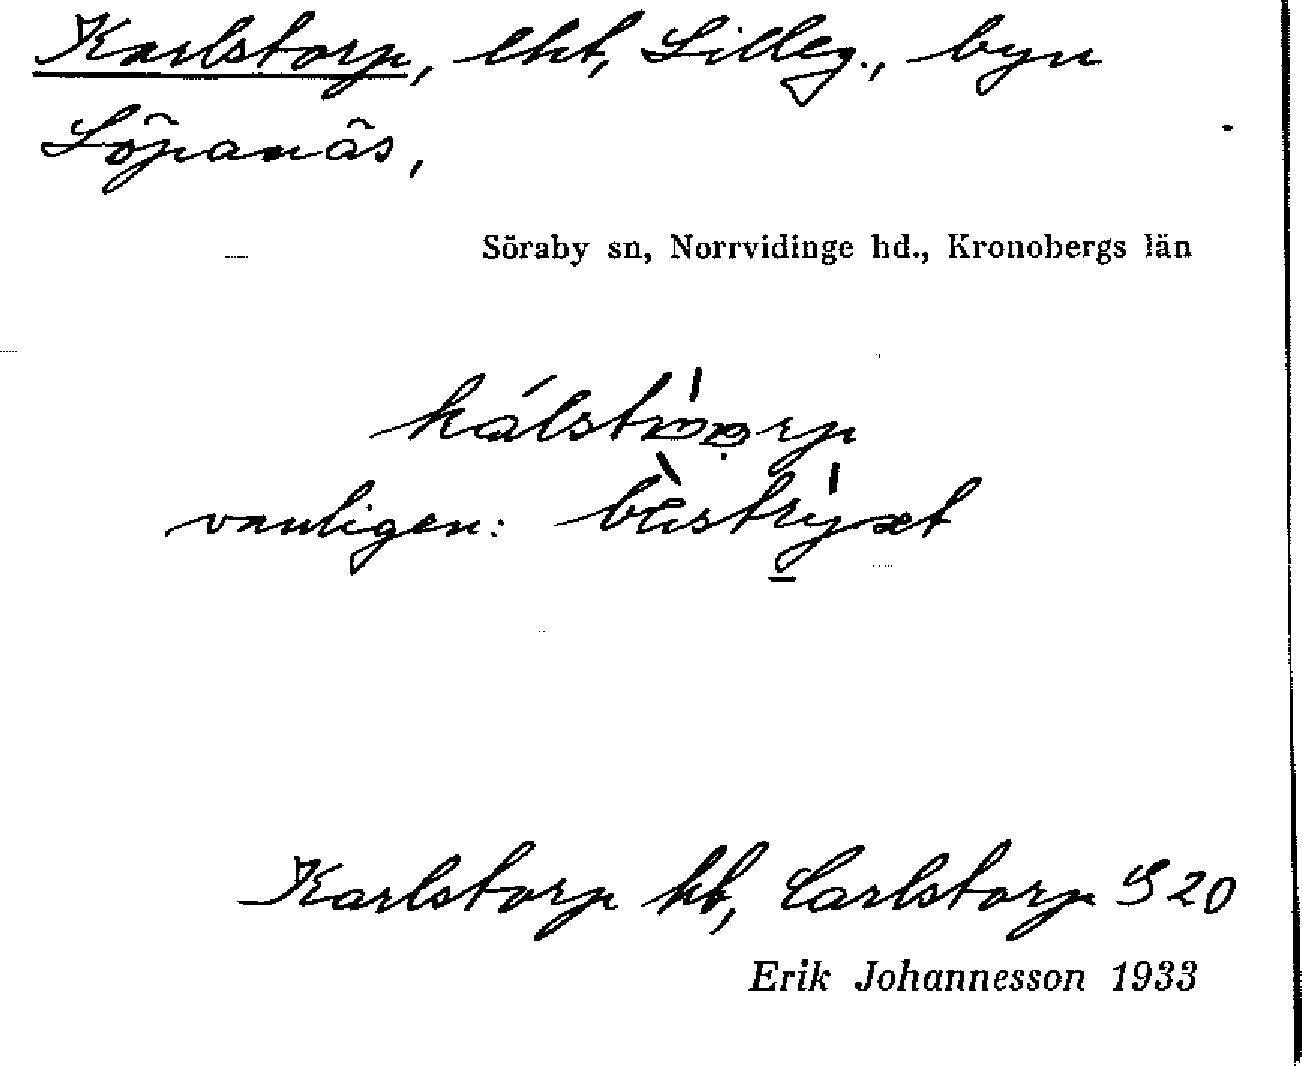 Karlstorp, lht, Lilleg., byn
Löpanäs,
Söraby sn, Norrvidinge hd., Kronobergs län
vanligen:
Karlstorp ht, Carlstorp S 20
Erik Johannesson 1933